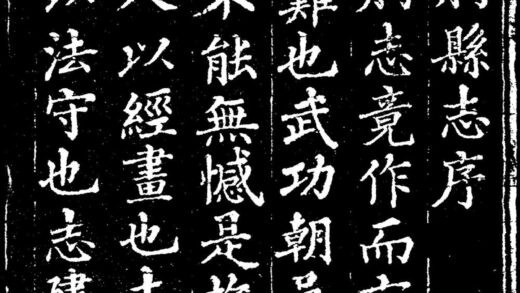 縣志序
志竟作而
難也武功朝
能無憾是
以經畫也
法守也志建